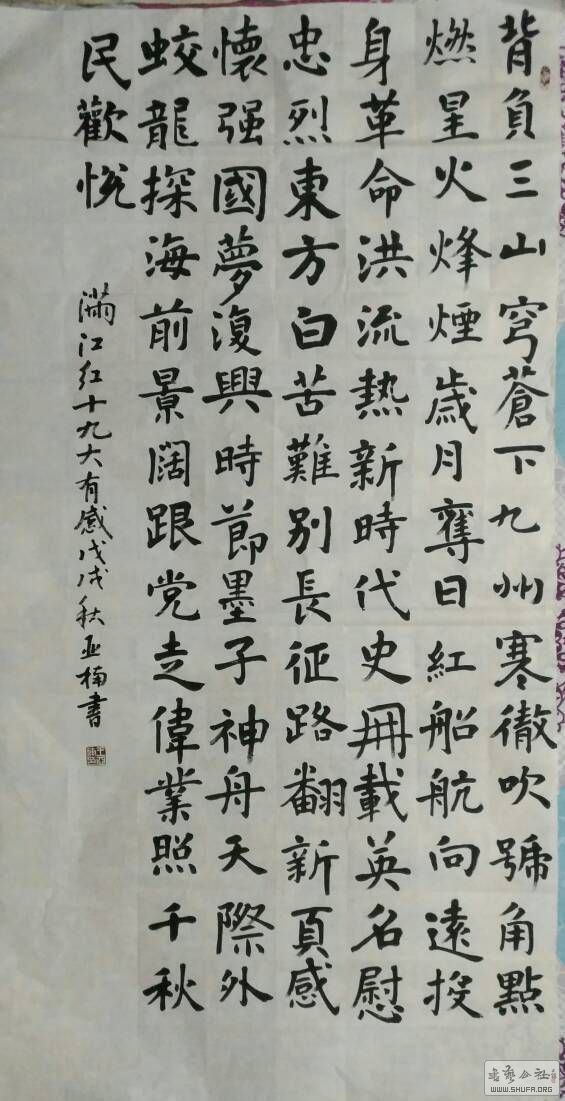 背負三山穹蒼下九州寒徹吹號角點
燃星火烽煙歲月奪日紅船航向遠投
身革命洪流熱新時代史冊載英名慰
忠烈東方白苦難別長征路翻新頁感
懷强國夢復興時節墨子神舟天際外
蛟龍探海前景闊跟党走偉業照千秋
民歡悅
滿江紅十九大有感戊戌秋亚楠書
WWW.SHUFA.ORG